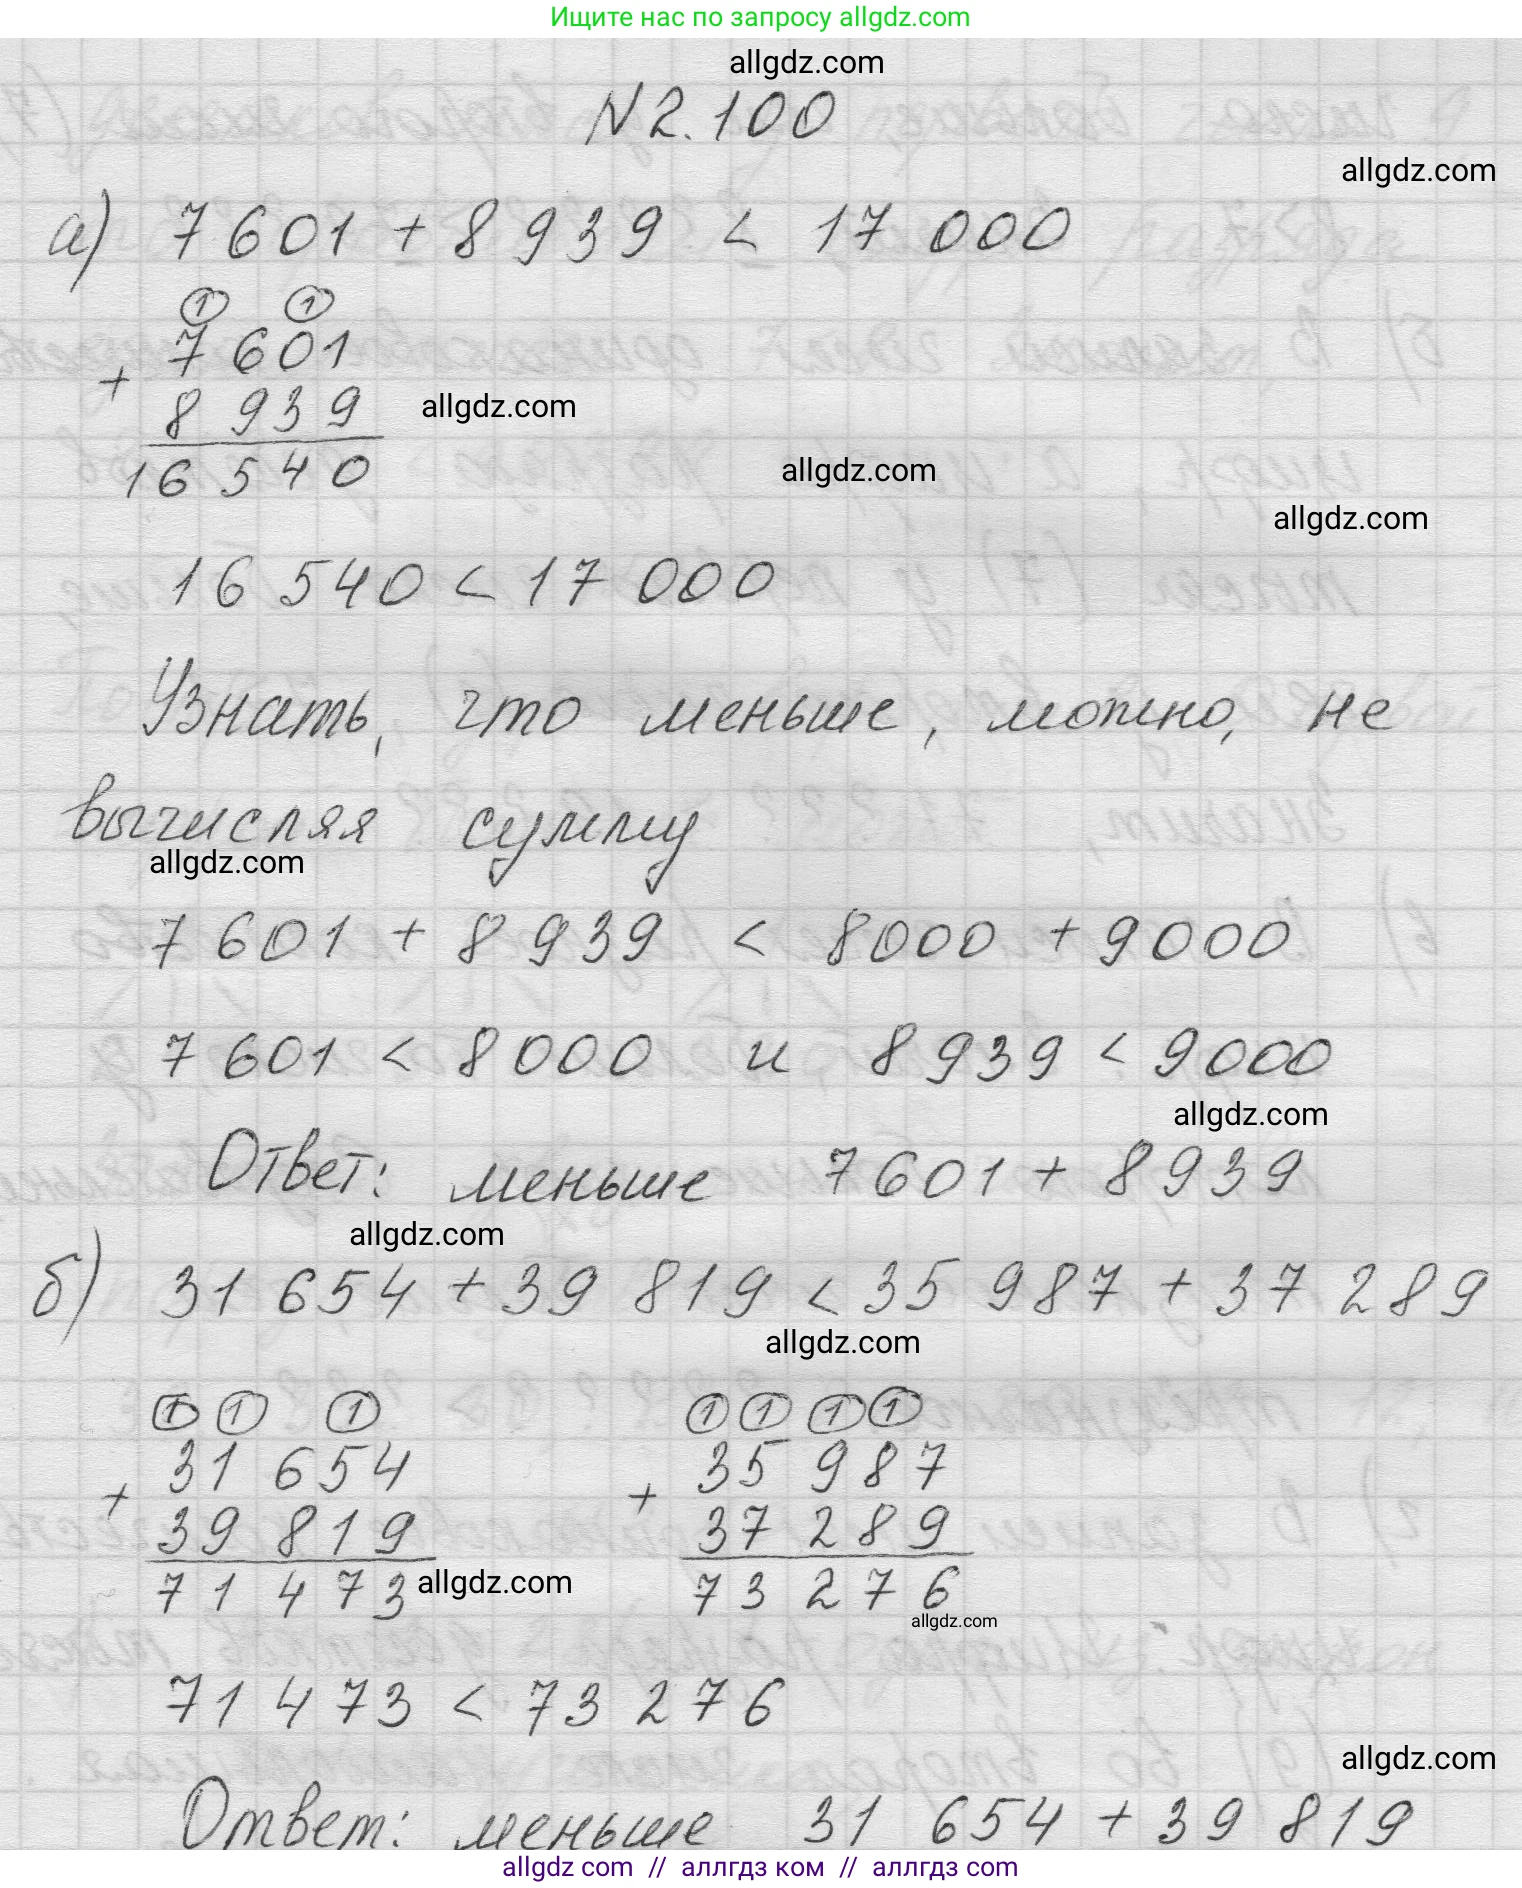 Ищите нас по запросу allgdz.com
allgdz.com
N 2.100
allgdz.com
а) 7 601 + 8 939 < 17 000
1 1
7 601
+
8 939
allgdz.com
16 540
allgdz.com
allgdz.com
16 540 < 17 000
Узнать, что меньше, можно, не
вычисляя сумму
allgdz.com
7 601 + 8 939 < 8000 + 9000
7 601 < 8 000 и 8 939 < 9000
allgdz.com
Ответ: меньше 7 601 + 8 939
allgdz.com
б) 31 654 + 39 819 < 35 987 + 37 289
allgdz.com
1 1 1 1 1 1 1
31 654 35 987
+ +
39 819 37 289
71 473 allgdz.com 73 276
allgdz.com
71 473 < 73 276
allgdz.com
Ответ: меньше 31 654 + 39 819
allgdz com // аллгдз ком // аллгдз com